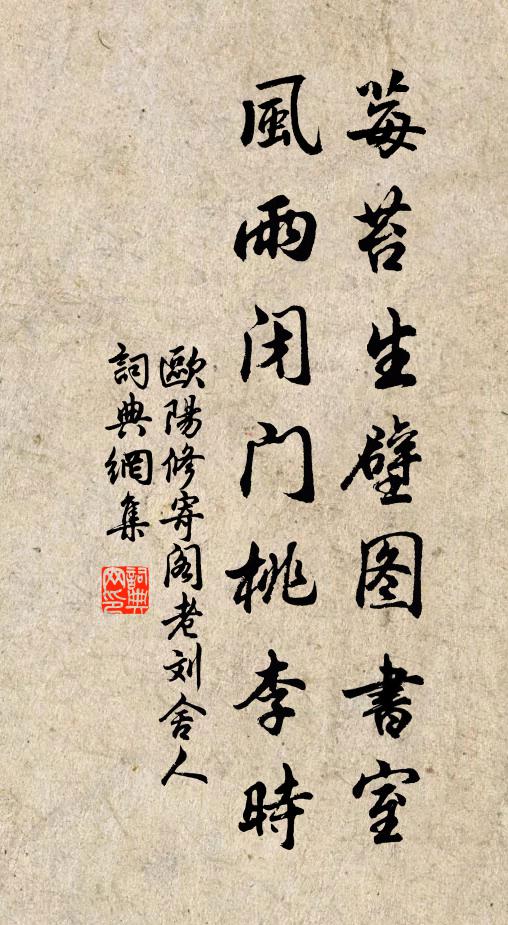 莓苔生壁图書室
風雨闭门桃李時
歐陽修寄阁老刘舍人
詞典網集
詞典網印